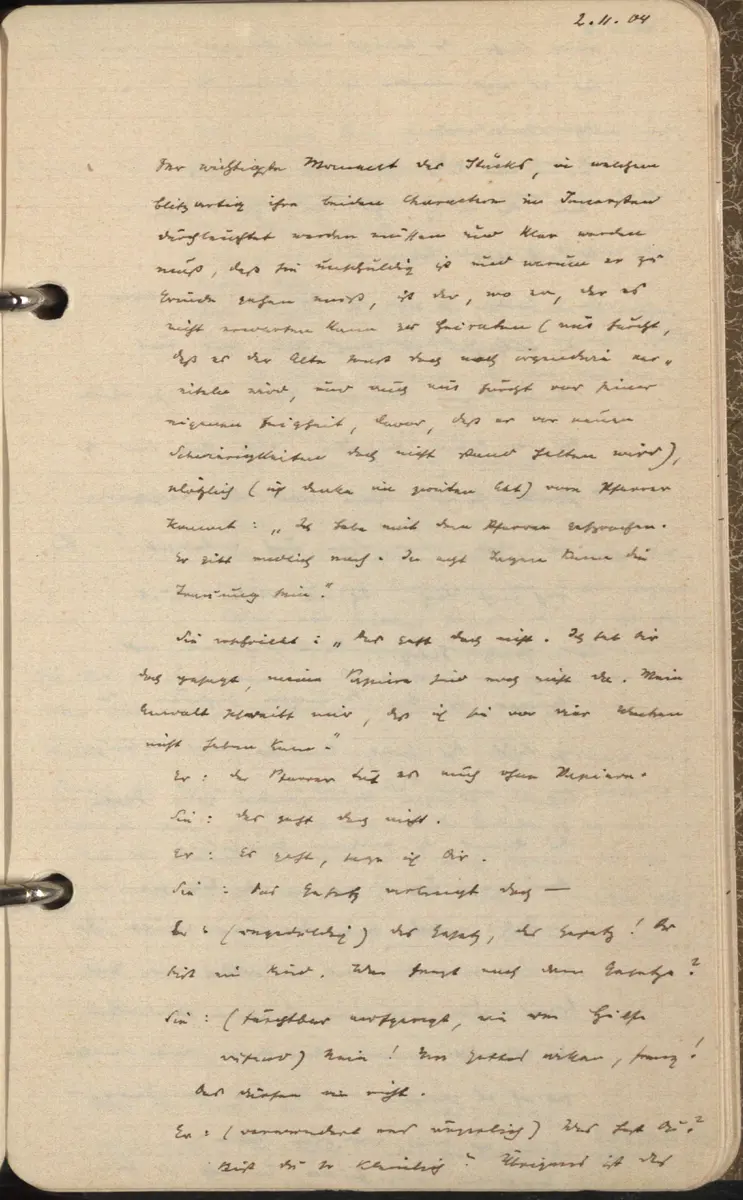 2.11.04
Der wichtigste Moment des Stücks, in welchem
blitzartig ihre beiden Charaktere im Innersten
durchleuchtet werden müssen und klar werden
muß, daß sie unschuldig ist und warum er zu
Grunde gehen muß, ist der, wo er, der es
nicht erwarten kann zu heiraten (aus Furcht,
daß es der Alte sonst doch noch irgendwie ver-
eiteln wird, und auch aus Furcht vor seiner
eigenen Feigheit, davor, daß er vor neuen
Schwierigkeiten doch nicht stand halten wird),
plötzlich (ich denke im zweiten Akt) vom Pfarrer
kommt: „Ich habe mit dem Pfarrer gesprochen.
Er gibt endlich nach. In acht Tagen kann die
Trauung sein."
Sie erschrickt: „Das geht doch nicht. Ich hab dir
doch gesagt, meine Papiere sind noch nicht da. Mein
Anwalt schreibt mir, daß ich sie vor vier Wochen
nicht haben kann."
Er: der Pfarrer tut es auch ohne Papiere.
Sie: das geht doch nicht.
Er: Es geht, sage ich Dir.
Sie: Das Gesetz verlangt doch —
Er: (ungeduldig) das Gesetz, das Gesetz! Du
bist ein Kind. Wer fragt nach dem Gesetze?
Sie: (furchtbar aufgeregt, wie um Hilfe
rufend) Nein! Um Gottes willen, Franz!
Das dürfen wir nicht.
Er: (verwundert und ärgerlich) Was hast Du?
Bist du so kleinlich? Übrigens ist das